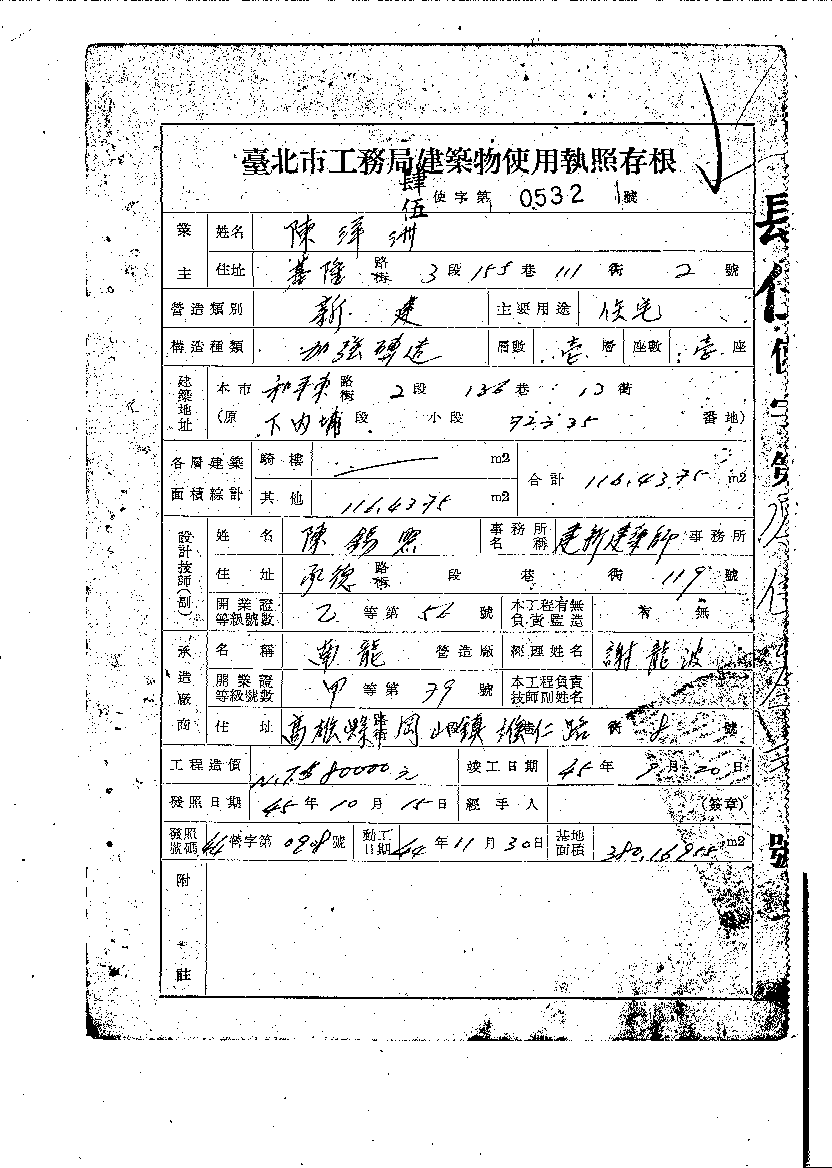 臺北市工務局建築物使用執照存根
肆伍使字第 0532 號
業主 姓名 陳澤洲
住址 基隆路街 3 段 155 巷 111 衖 2 號
營造類別 新建 主要用途 住宅
構造種類 加強磚造 層數 壹層 座數 壹座
建築地址 本市 和平東路街 2 段 136 巷 13 衖
(原 下內埔段 小段 72-35 番地)
各層建築面積綜計 騎樓 m2 合計 116.4375 m2
其他 116.4375 m2
設計技師(副) 姓名 陳錫 事務所名稱 建新建築師事務所
住址 承德路街 段 巷 衖 119 號
開業證等級號數 乙等第 56 號 本工程有無負責監造 有 無
承造廠商 名稱 南龍營造廠 經理姓名 謝龍波
開業證等級號數 甲等第 79 號 本工程負責技師副姓名
住址 高雄縣岡山鎮維仁路 街 8 號
工程造價 N.T.$80000元 竣工日期 45年9月20日
發照日期 45年10月15日 經手人 (簽章)
發照號碼 44營字第 0908 號 動工日期 44年11月30日 基地面積 380.16955 m2
附註
長 使字第 號